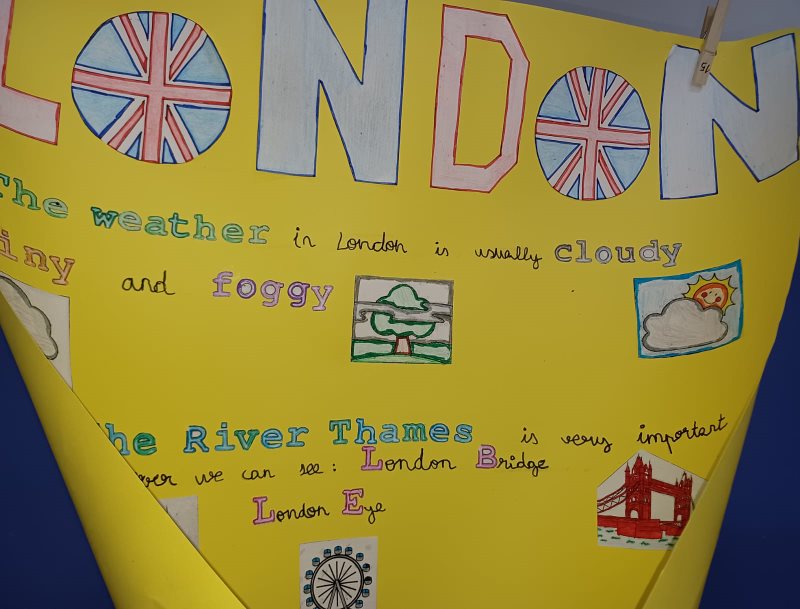 LONDON
The weather in London is usually cloudy
iny and foggy
he River Thames is very important
ver we can see: London Bridge
London Eye